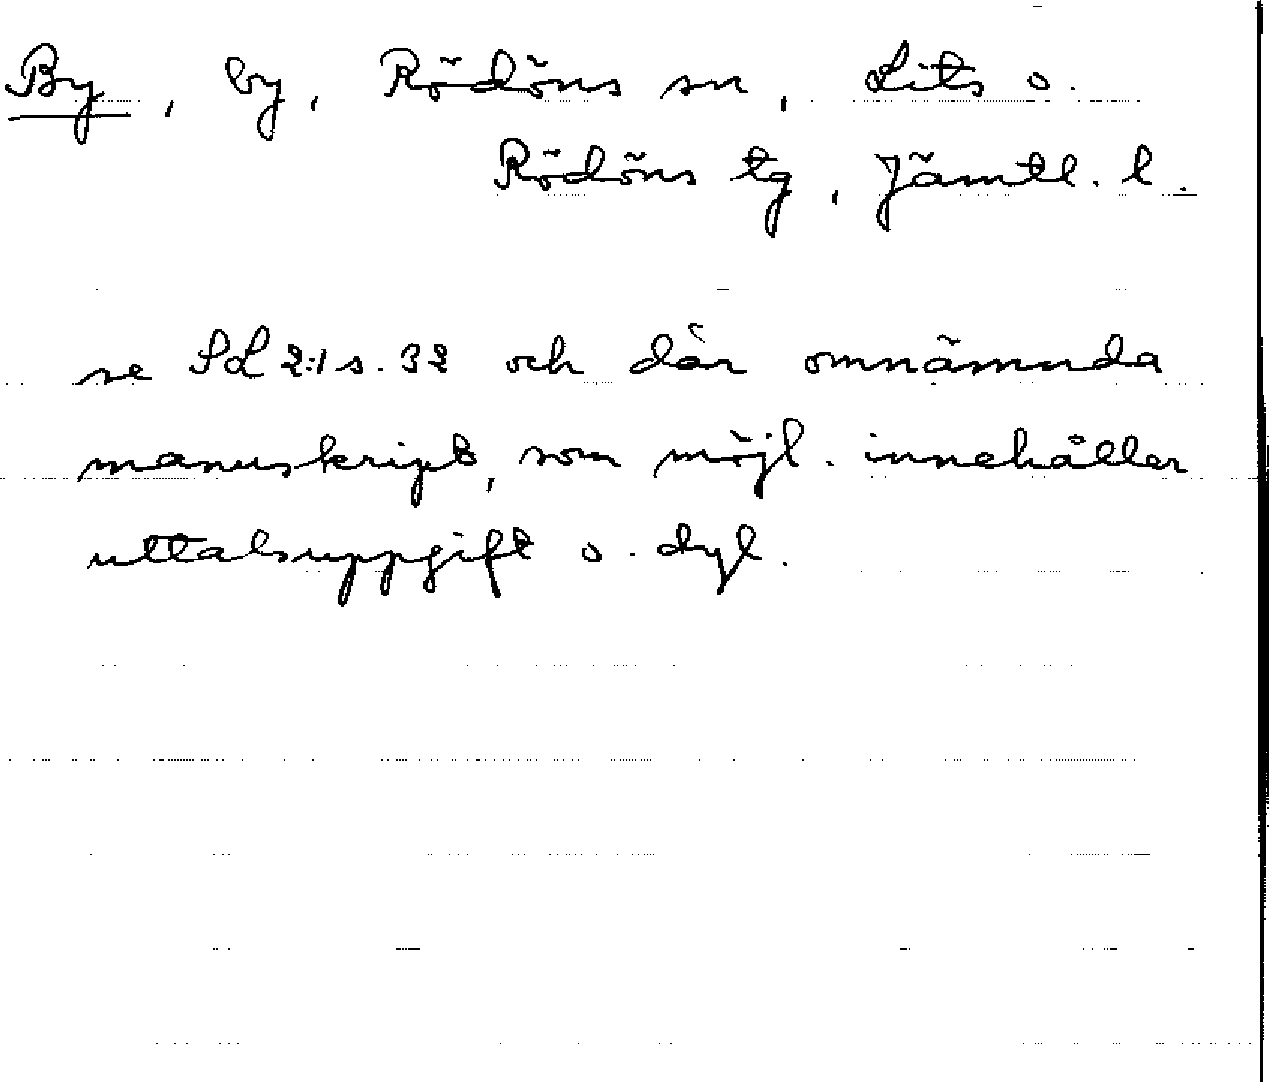 By, by, Rödöns sn, Lits o.
Rödöns tg, Jämtl. l.
se SL 2:1 s. 32 och där omnämnda
manuskript, som möjl. innehåller
uttalsuppgift o. dyl.